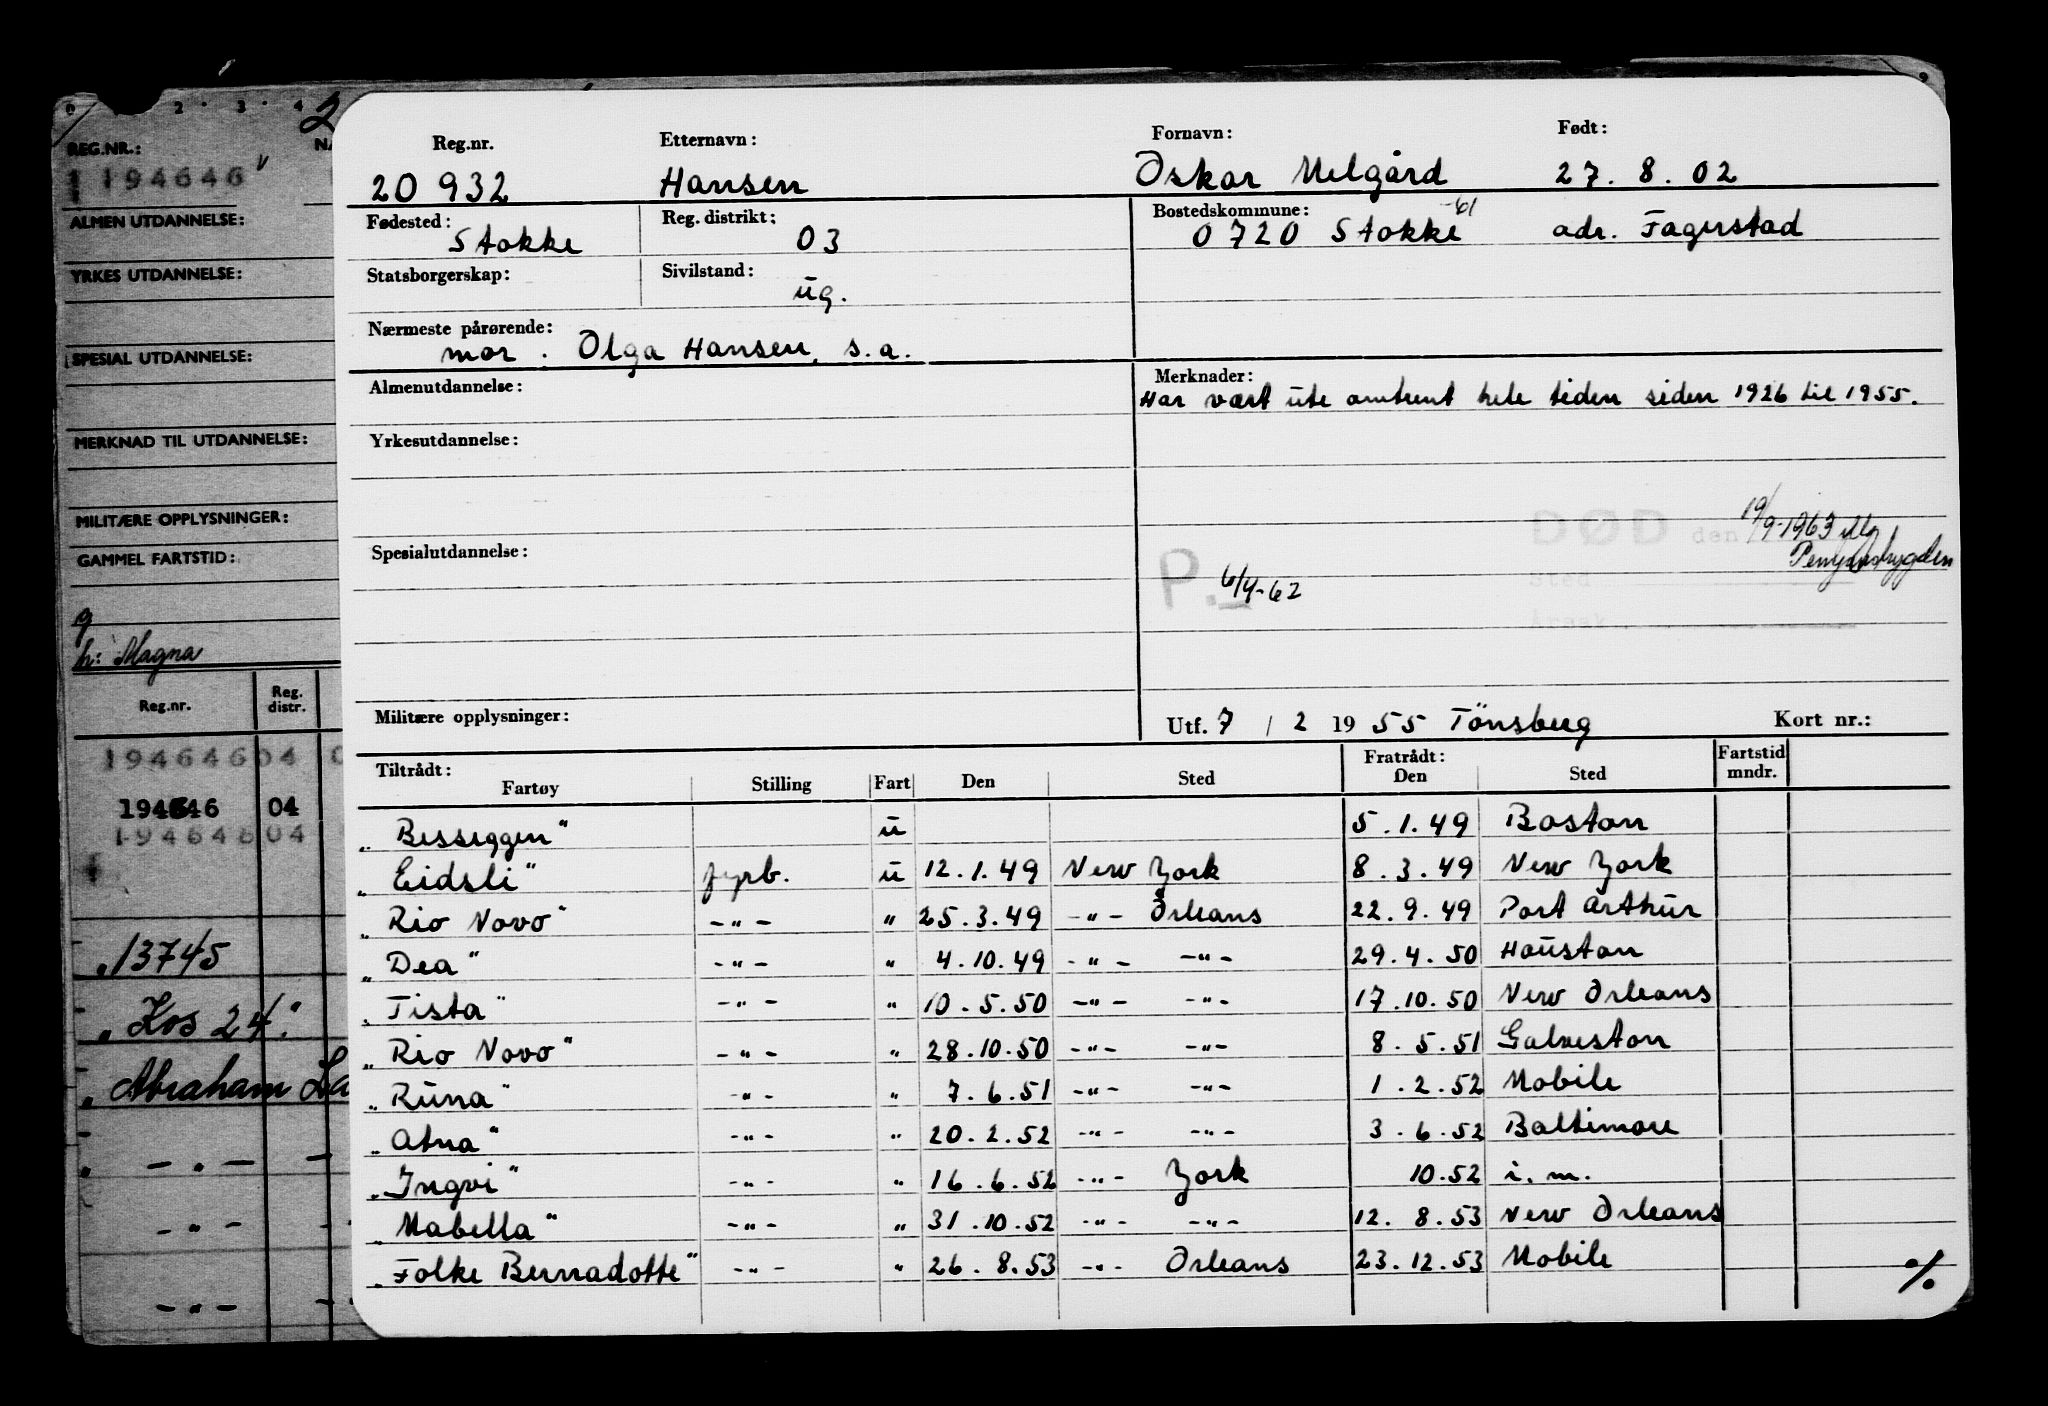 2 3 4
2
REG.NR.:
194646
ALMEN UTDANNELSE:
YRKES UTDANNELSE:
SPESIAL UTDANNELSE:
MERKNAD TIL UTDANNELSE:
MILITÆRE OPPLYSNINGER:
GAMMEL FARTSTID:
g
h: Magna
Reg.nr. Reg. distr.
194646 04 0
194646 04
194646 04
"13745
"Kos 24."
"Abraham La
" — " —
- " -
- " -
Reg.nr. Etternavn: Fornavn: Født:
20 932 Hansen Oskar Melgård 27. 8. 02
Fødested: Stokke Reg. distrikt: 03 Bostedskommune: 0720 Stokke -61 adr. Fagerstad
Statsborgerskap: Sivilstand: ug.
Nærmeste pårørende: mor. Olga Hansen, s.a.
Almenutdannelse: Merknader:
Har vært ute omtrent hele tiden siden 1926 til 1955.
Yrkesutdannelse:
DØD den 19/9-1963
Spesialutdannelse:
P. 6/4-62
Sted
Årsak
Militære opplysninger: Utf. 7 / 2 19 55 Tönsberg Kort nr.:
Tiltrådt: Fratrådt: Fartstid
Fartøy Stilling Fart Den Sted Den Sted mndr.
"Besseggen" u 5.1.49 Boston
"Eidsli" fyrb. u 12.1.49 New York 8.3.49 New York
"Rio Novo" -"- " 25.3.49 -"- Orleans 22.9.49 Port Arthur
"Dea" -"- " 4.10.49 -"- -"- 29.4.50 Houston
"Tista" -"- " 10.5.50 -"- -"- 17.10.50 New Orleans
"Rio Novo" -"- " 28.10.50 -"- -"- 8.5.51 Galveston
"Runa" -"- " 7.6.51 -"- -"- 1.2.52 Mobile
"Atna" -"- " 20.2.52 -"- -"- 3.6.52 Baltimore
"Ingvi" -"- " 16.6.52 -"- York 10.52 i.m.
"Mabella" -"- " 31.10.52 -"- -"- 12.8.53 New Orleans
"Folke Bernadotte" -"- " 26.8.53 -"- Orleans 23.12.53 Mobile
%